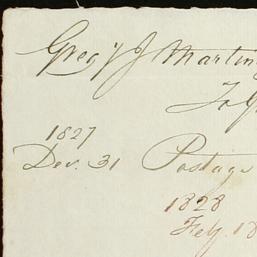 Greg'y J Martin
To
1827
Dec. 31 Postage
1828
Feb. 18